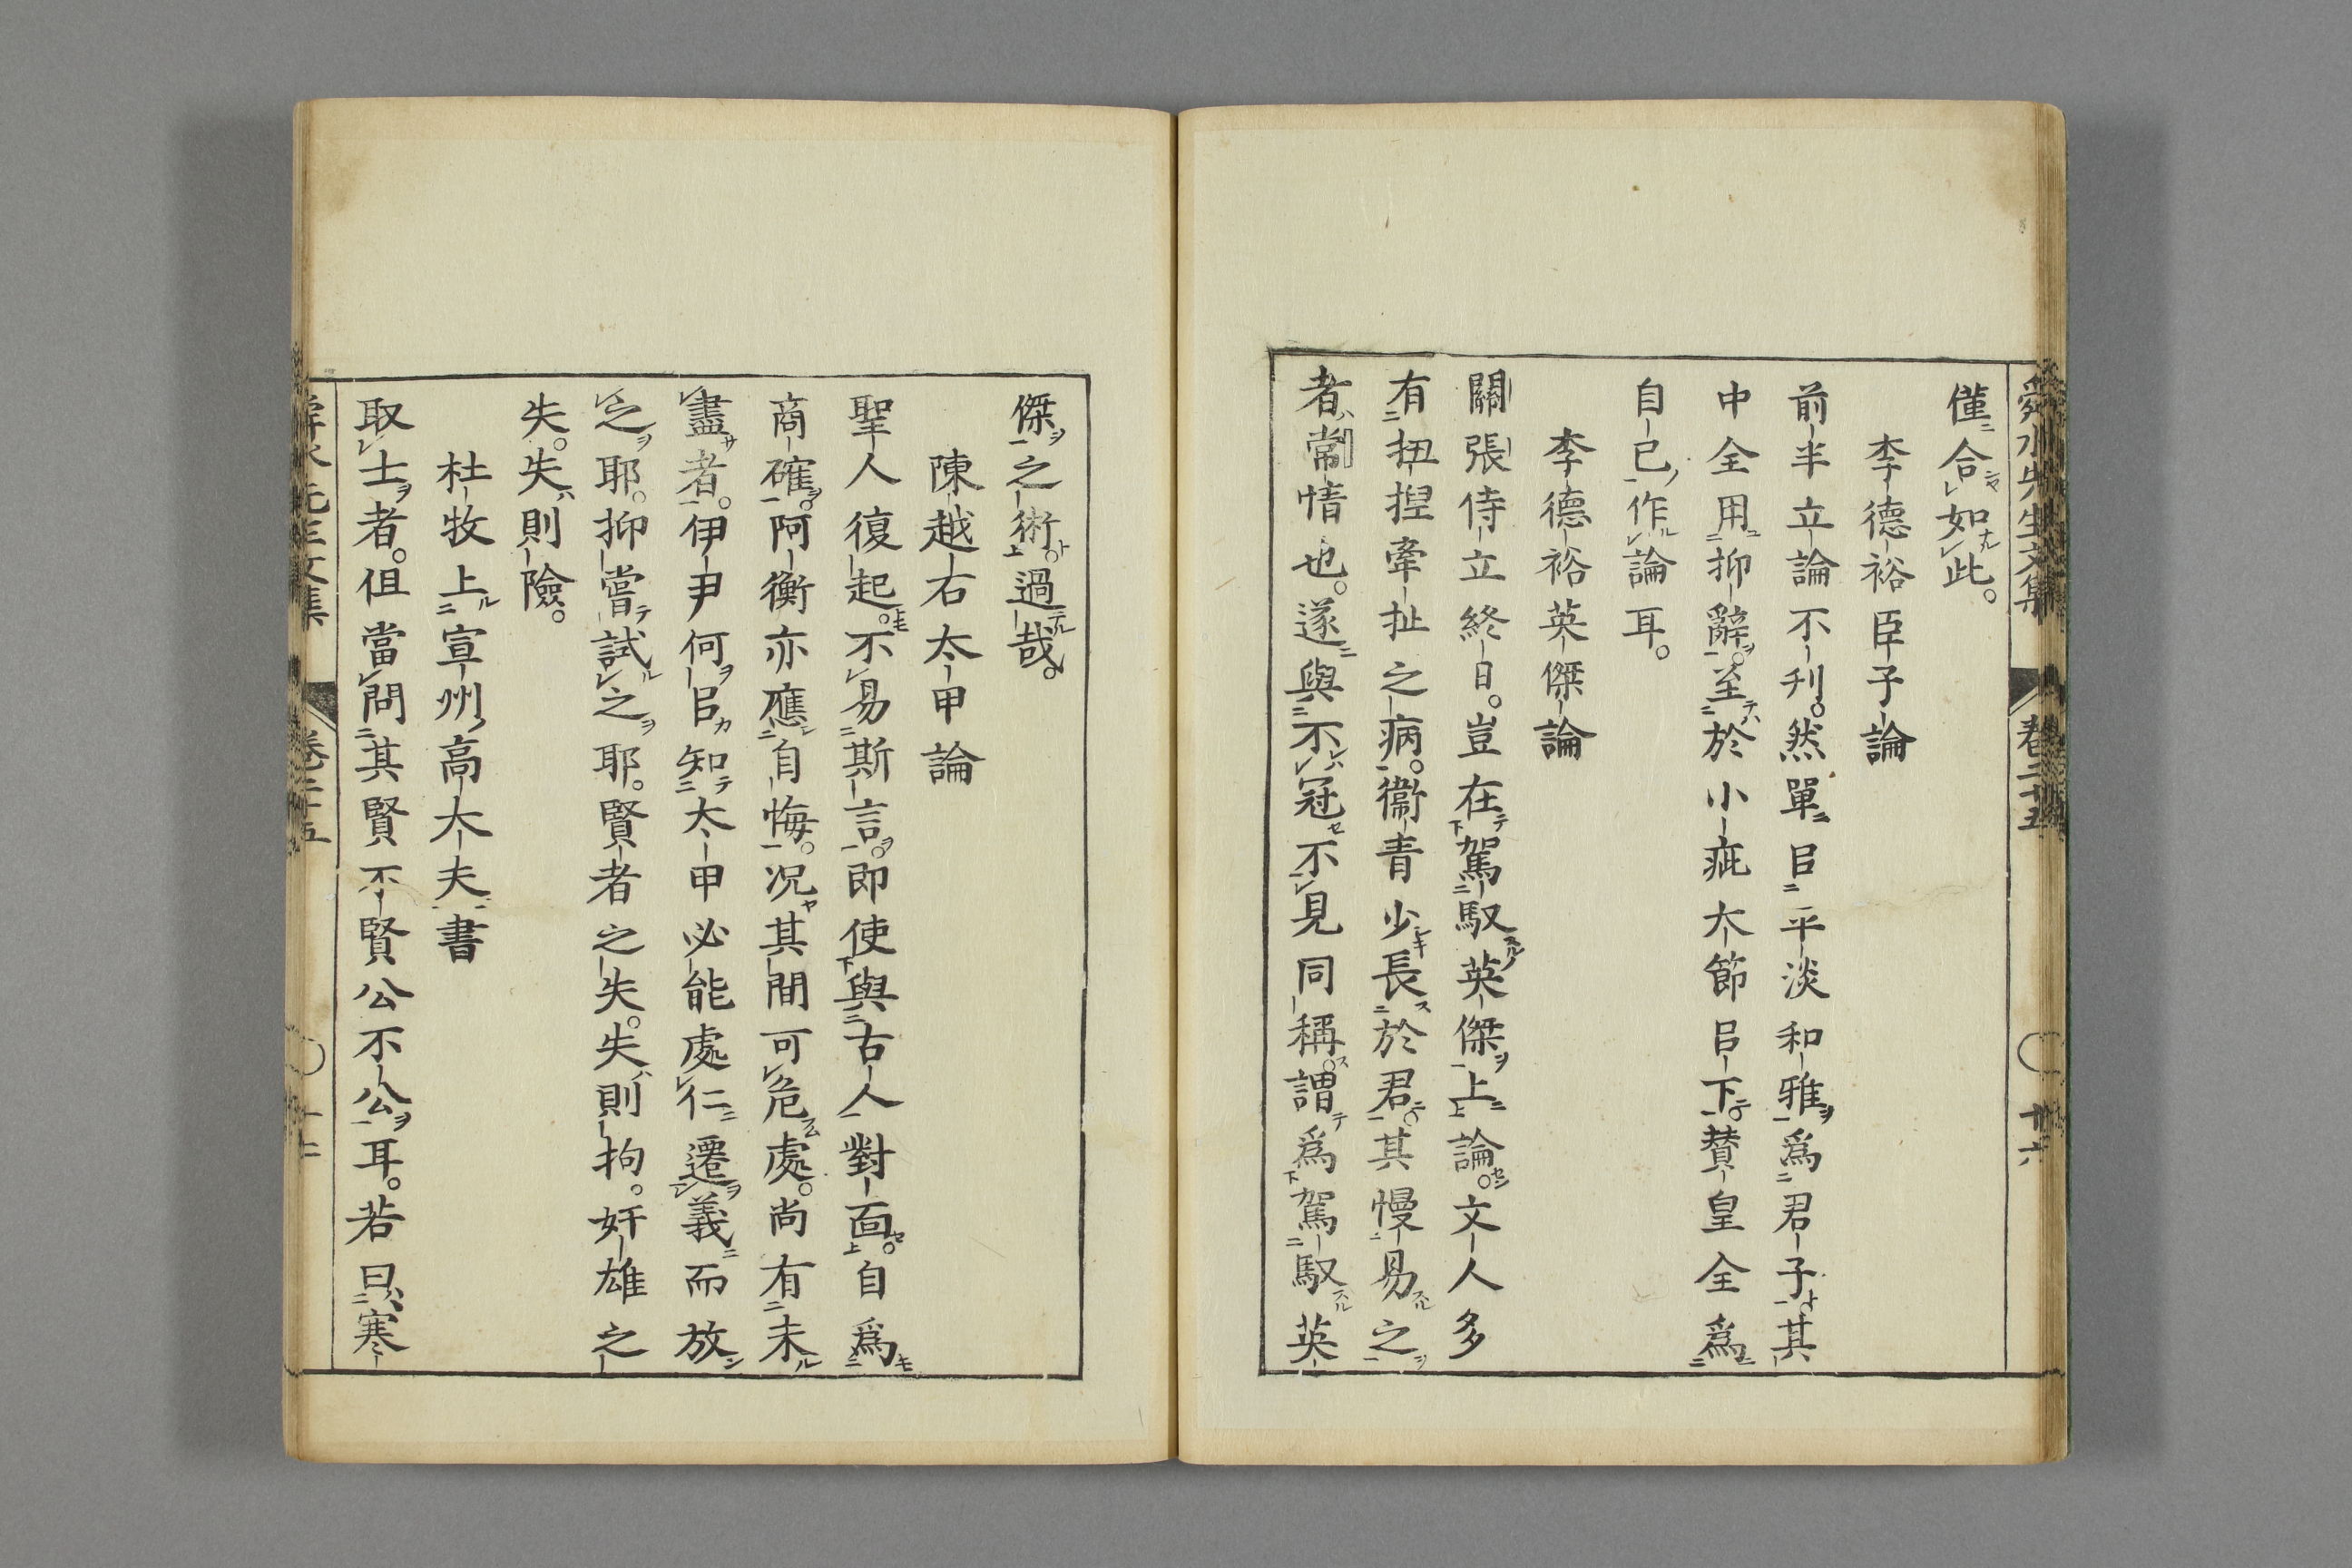 舜水先生文集 卷二十五 十六
僅合如此。
李德裕臣子論
前半立論不刋。然單㠯平淡和雅爲君子。其
中全用抑辭。至於小疵大節㠯下。賛皇全爲
自已作論耳。
李德裕英傑論
關張侍立終日。豈在駕馭英傑上論。文人多
有扭揑牽扯之病。衞青少長於君。其慢易之
者常情也。遂與不冠不見同稱。謂爲駕馭英
傑之術。過哉。
陳越石太甲論
聖人復起。不易斯言。即使與古人對面。自爲
商確。阿衡亦應自悔。况其間可危處。尚有未
盡者。伊尹何㠯知太甲必能處仁遷義而放
之耶。抑嘗試之耶。賢者之失。失則拘。奸雄之
失。失則險。
杜牧上宣州高大夫書
取士者。但當問其賢不賢公不公耳。若曰寒
舜水先生文集 卷二十五